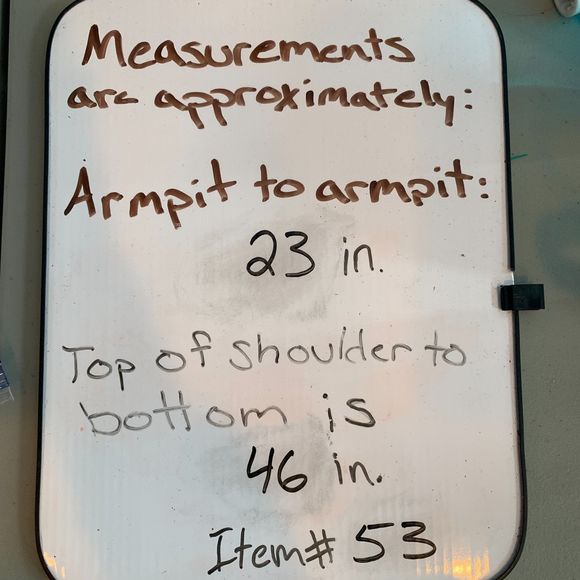 Measurements
are approximately:
Armpit to armpit:
23 in.
Top of shoulder to
bottom is
46 in.
Item# 53